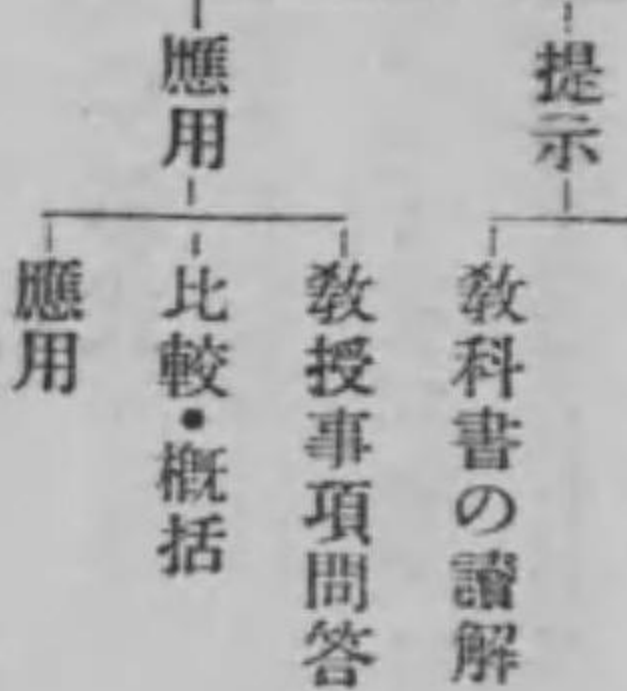 提示
教科書の讀解
應用
教授事項問答
比較・槪括
應用